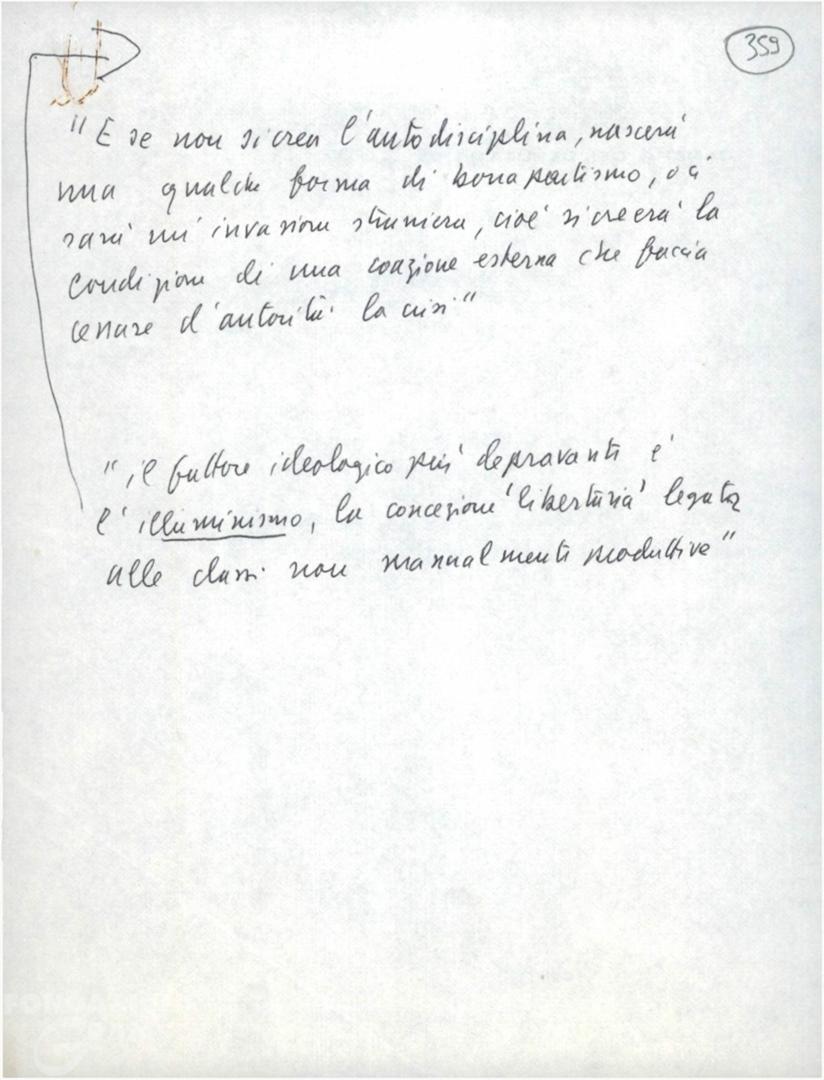 359
"E se non si crea l'autodisciplina, nascerà
una qualche forma di bonapartismo, o ci
sarà un'invasione straniera, cioè si creerà la
condizione di una coazione esterna che faccia
cessare d'autorità la crisi"
"il fattore ideologico più depravante è
l'illuminismo, la concezione 'libertaria' legata
alle classi non manualmente produttive"